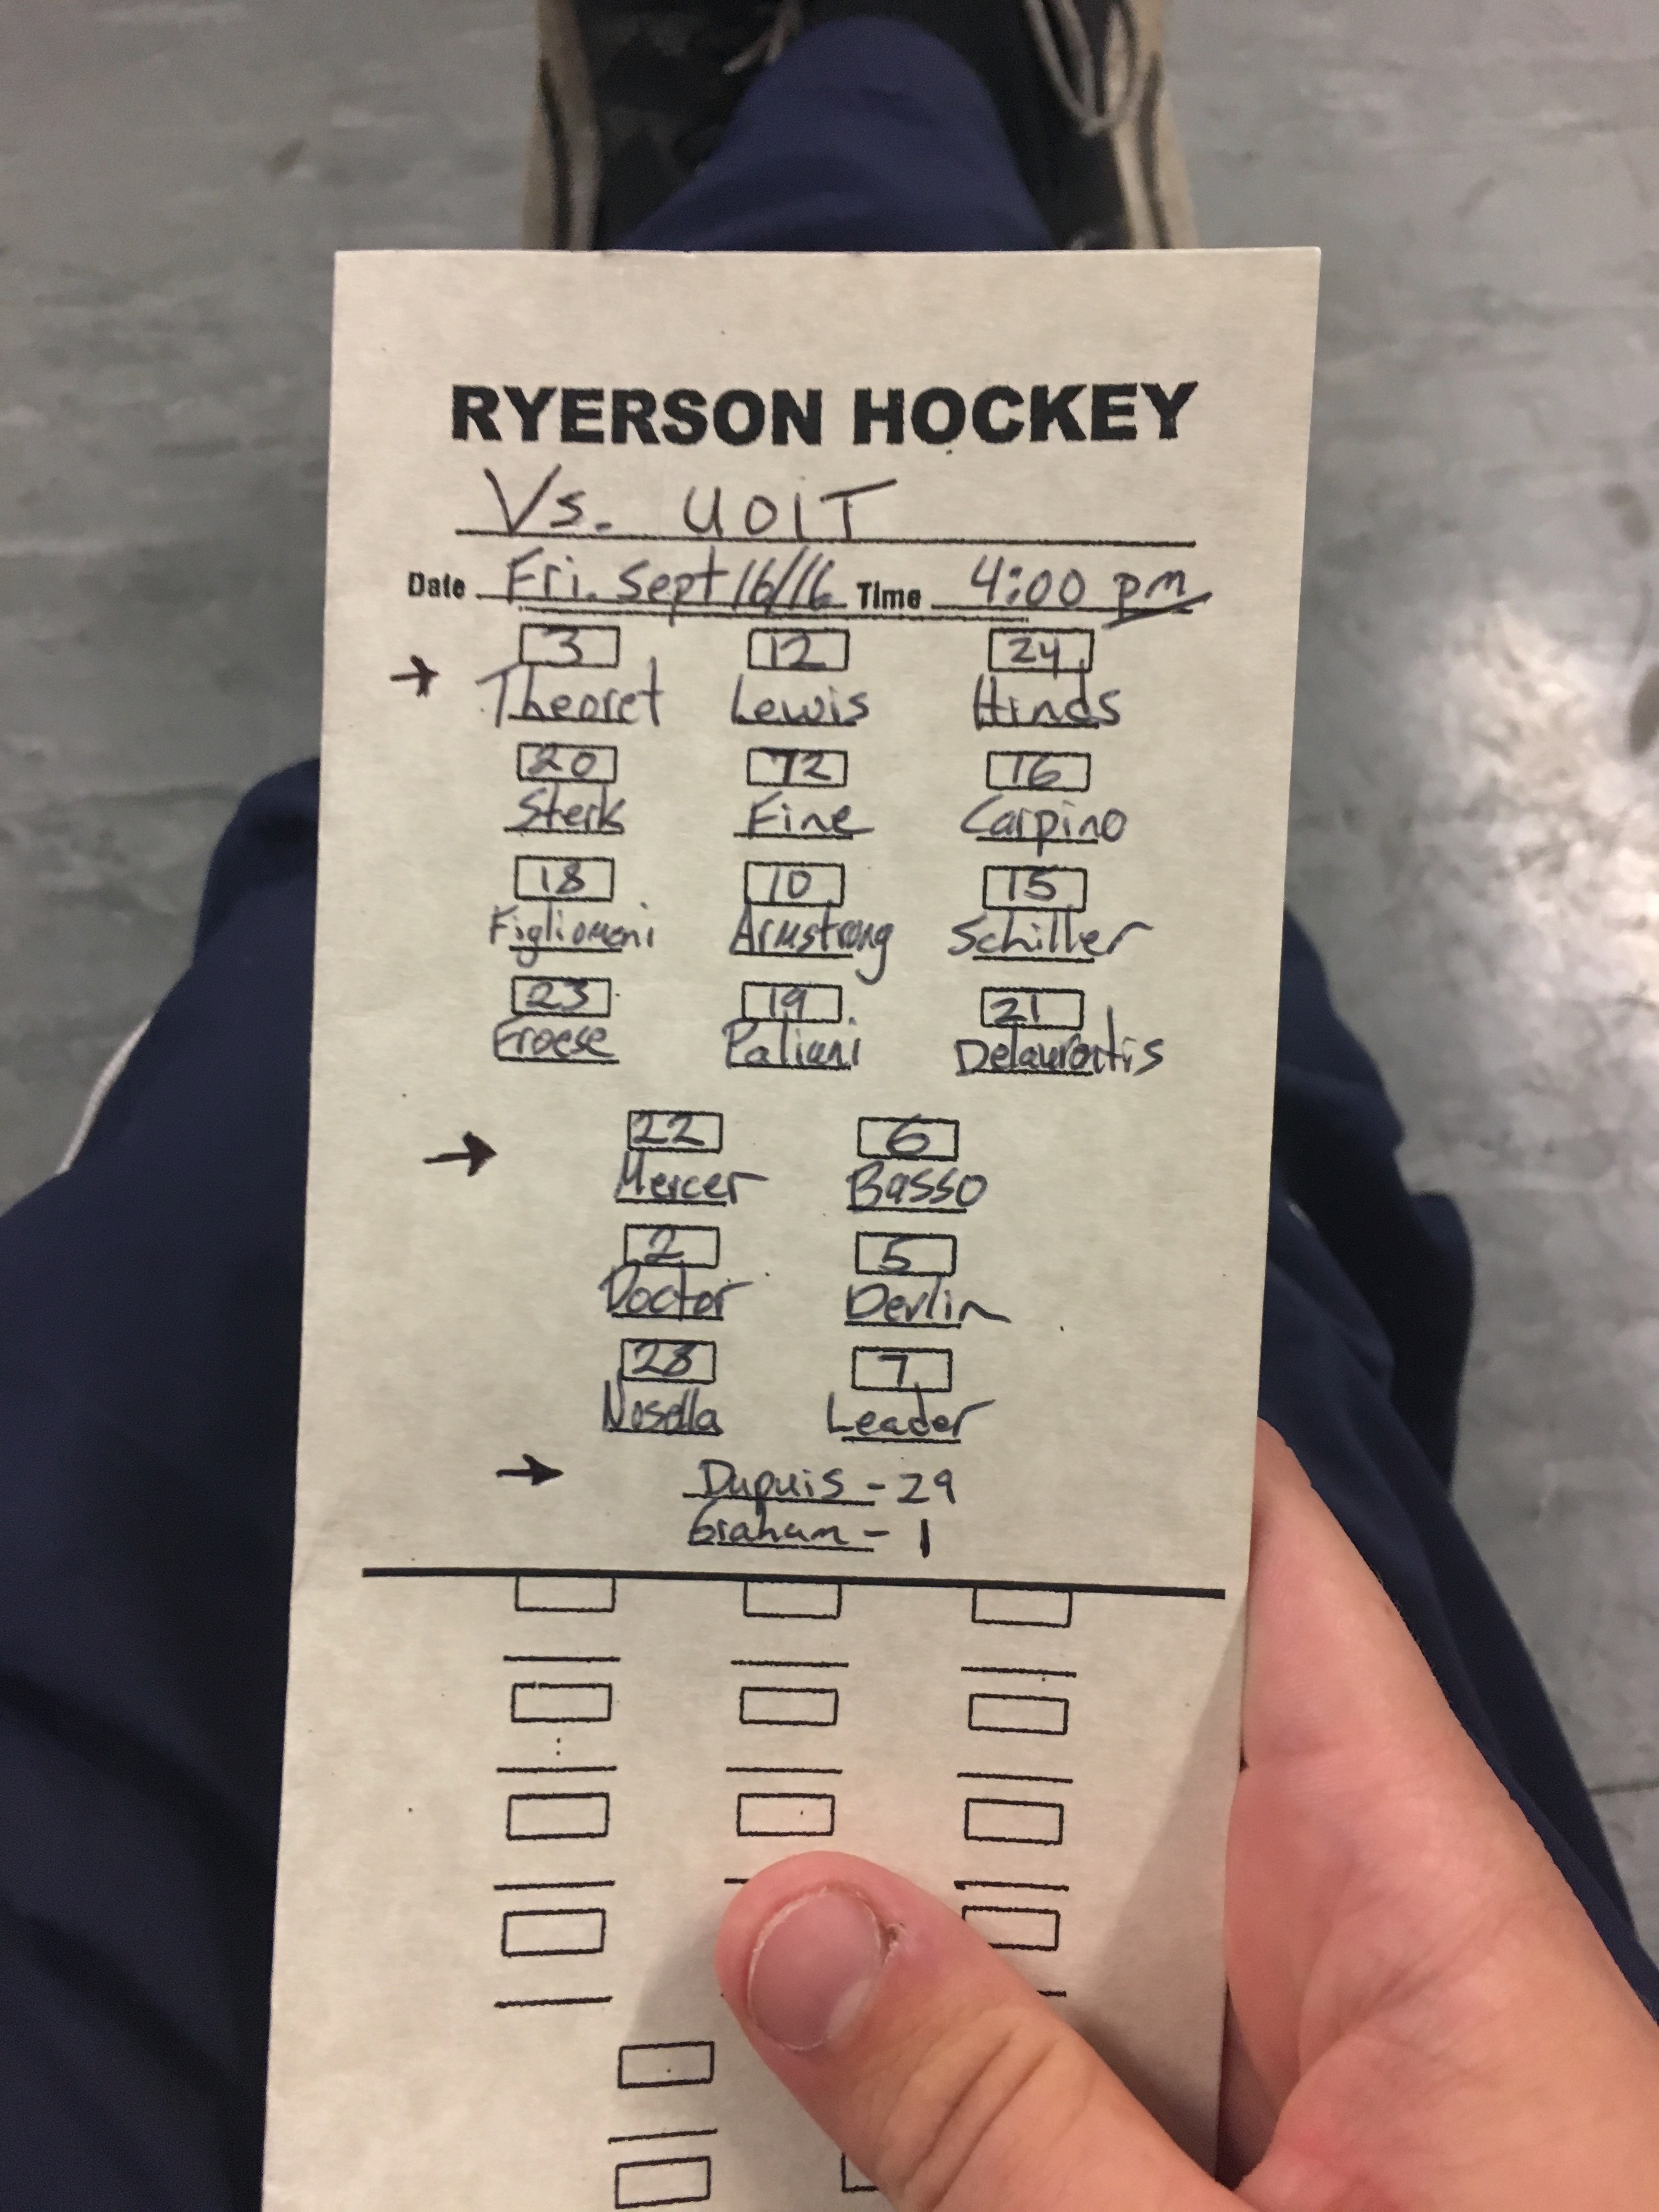 RYERSON HOCKEY
Vs. UOIT
Date Fri. Sept 16/16 Time 4:00 pm
3 12 24
→ Theoret Lewis Hinds
20 72 16
Sterk Fine Carpino
18 10 15
Figliomeni Armstrong Schiller
23 19 21
Froese Paliani Delaurentis
22 6
→ Mercer Basso
2 5
Doctor Devlin
28 7
Nosella Leader
→ Dupuis - 29
Graham - 1